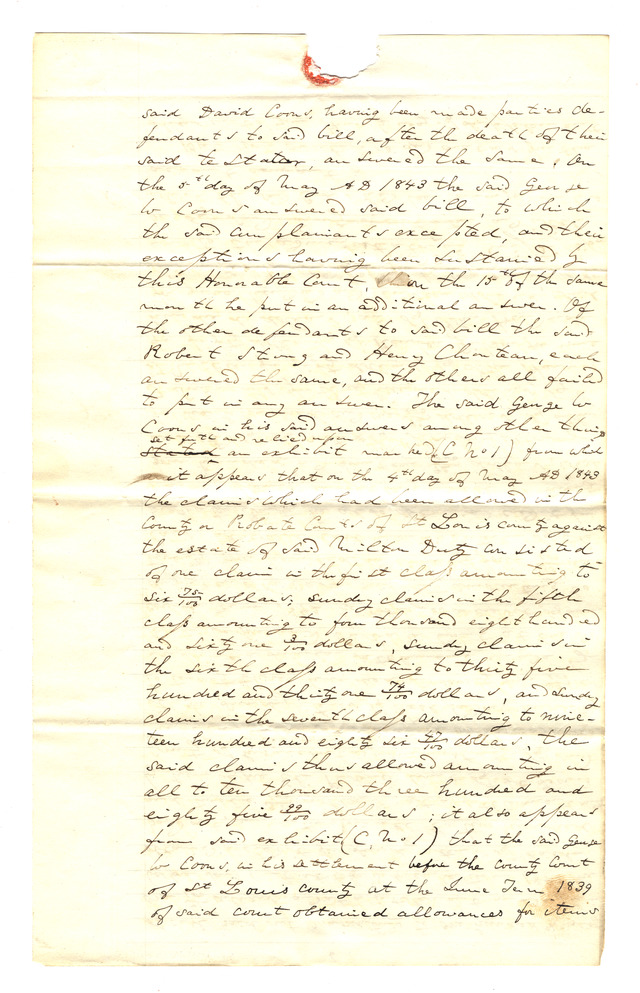 said David Coons, having been made parties de-
fendants to said bill, after the death of their
said testator, answered the same, On
the 5th day of May AD 1843 the said George
W Coons answered said bill, to which
the said complainants excepted, and their
exceptions having been sustained by
this Honorable Court, on the 15th of the same
month he put in an additional answer. Of
the other defendants to said bill the said
Robert Strong and Henry Chouteau, each
answered the same, and the others all failed
to put in any answer. The said George W
Coons in his said answers among other things
set forth and relied upon
stated an exhibit marked (C No 1) from which
it appears that on the 4th day of May AD 1843
the claims which had been allowed in the
County or Probate Courts of St Louis county against
the estate of said Milton Duty consisted
of one claim in the first class amounting to
six 75/100 dollars; sundry claims in the fifth
class amounting to four thousand eight hundred
and sixty one 3/100 dollars, sundry claims in
the sixth class amounting to thirty five
hundred and thirty one 74/100 dollars, and sundry
claims in the seventh class amounting to nine-
teen hundred and eighty six 47/100 dollars, the
said claims thus allowed amounting in
all to ten thousand three hundred and
eighty five 99/100 dollars; it also appears
from said exhibit (C, No 1) that the said George
W Coons, in his settlement before the county Court
of St Louis county at the June Term 1839
of said court obtained allowances for items